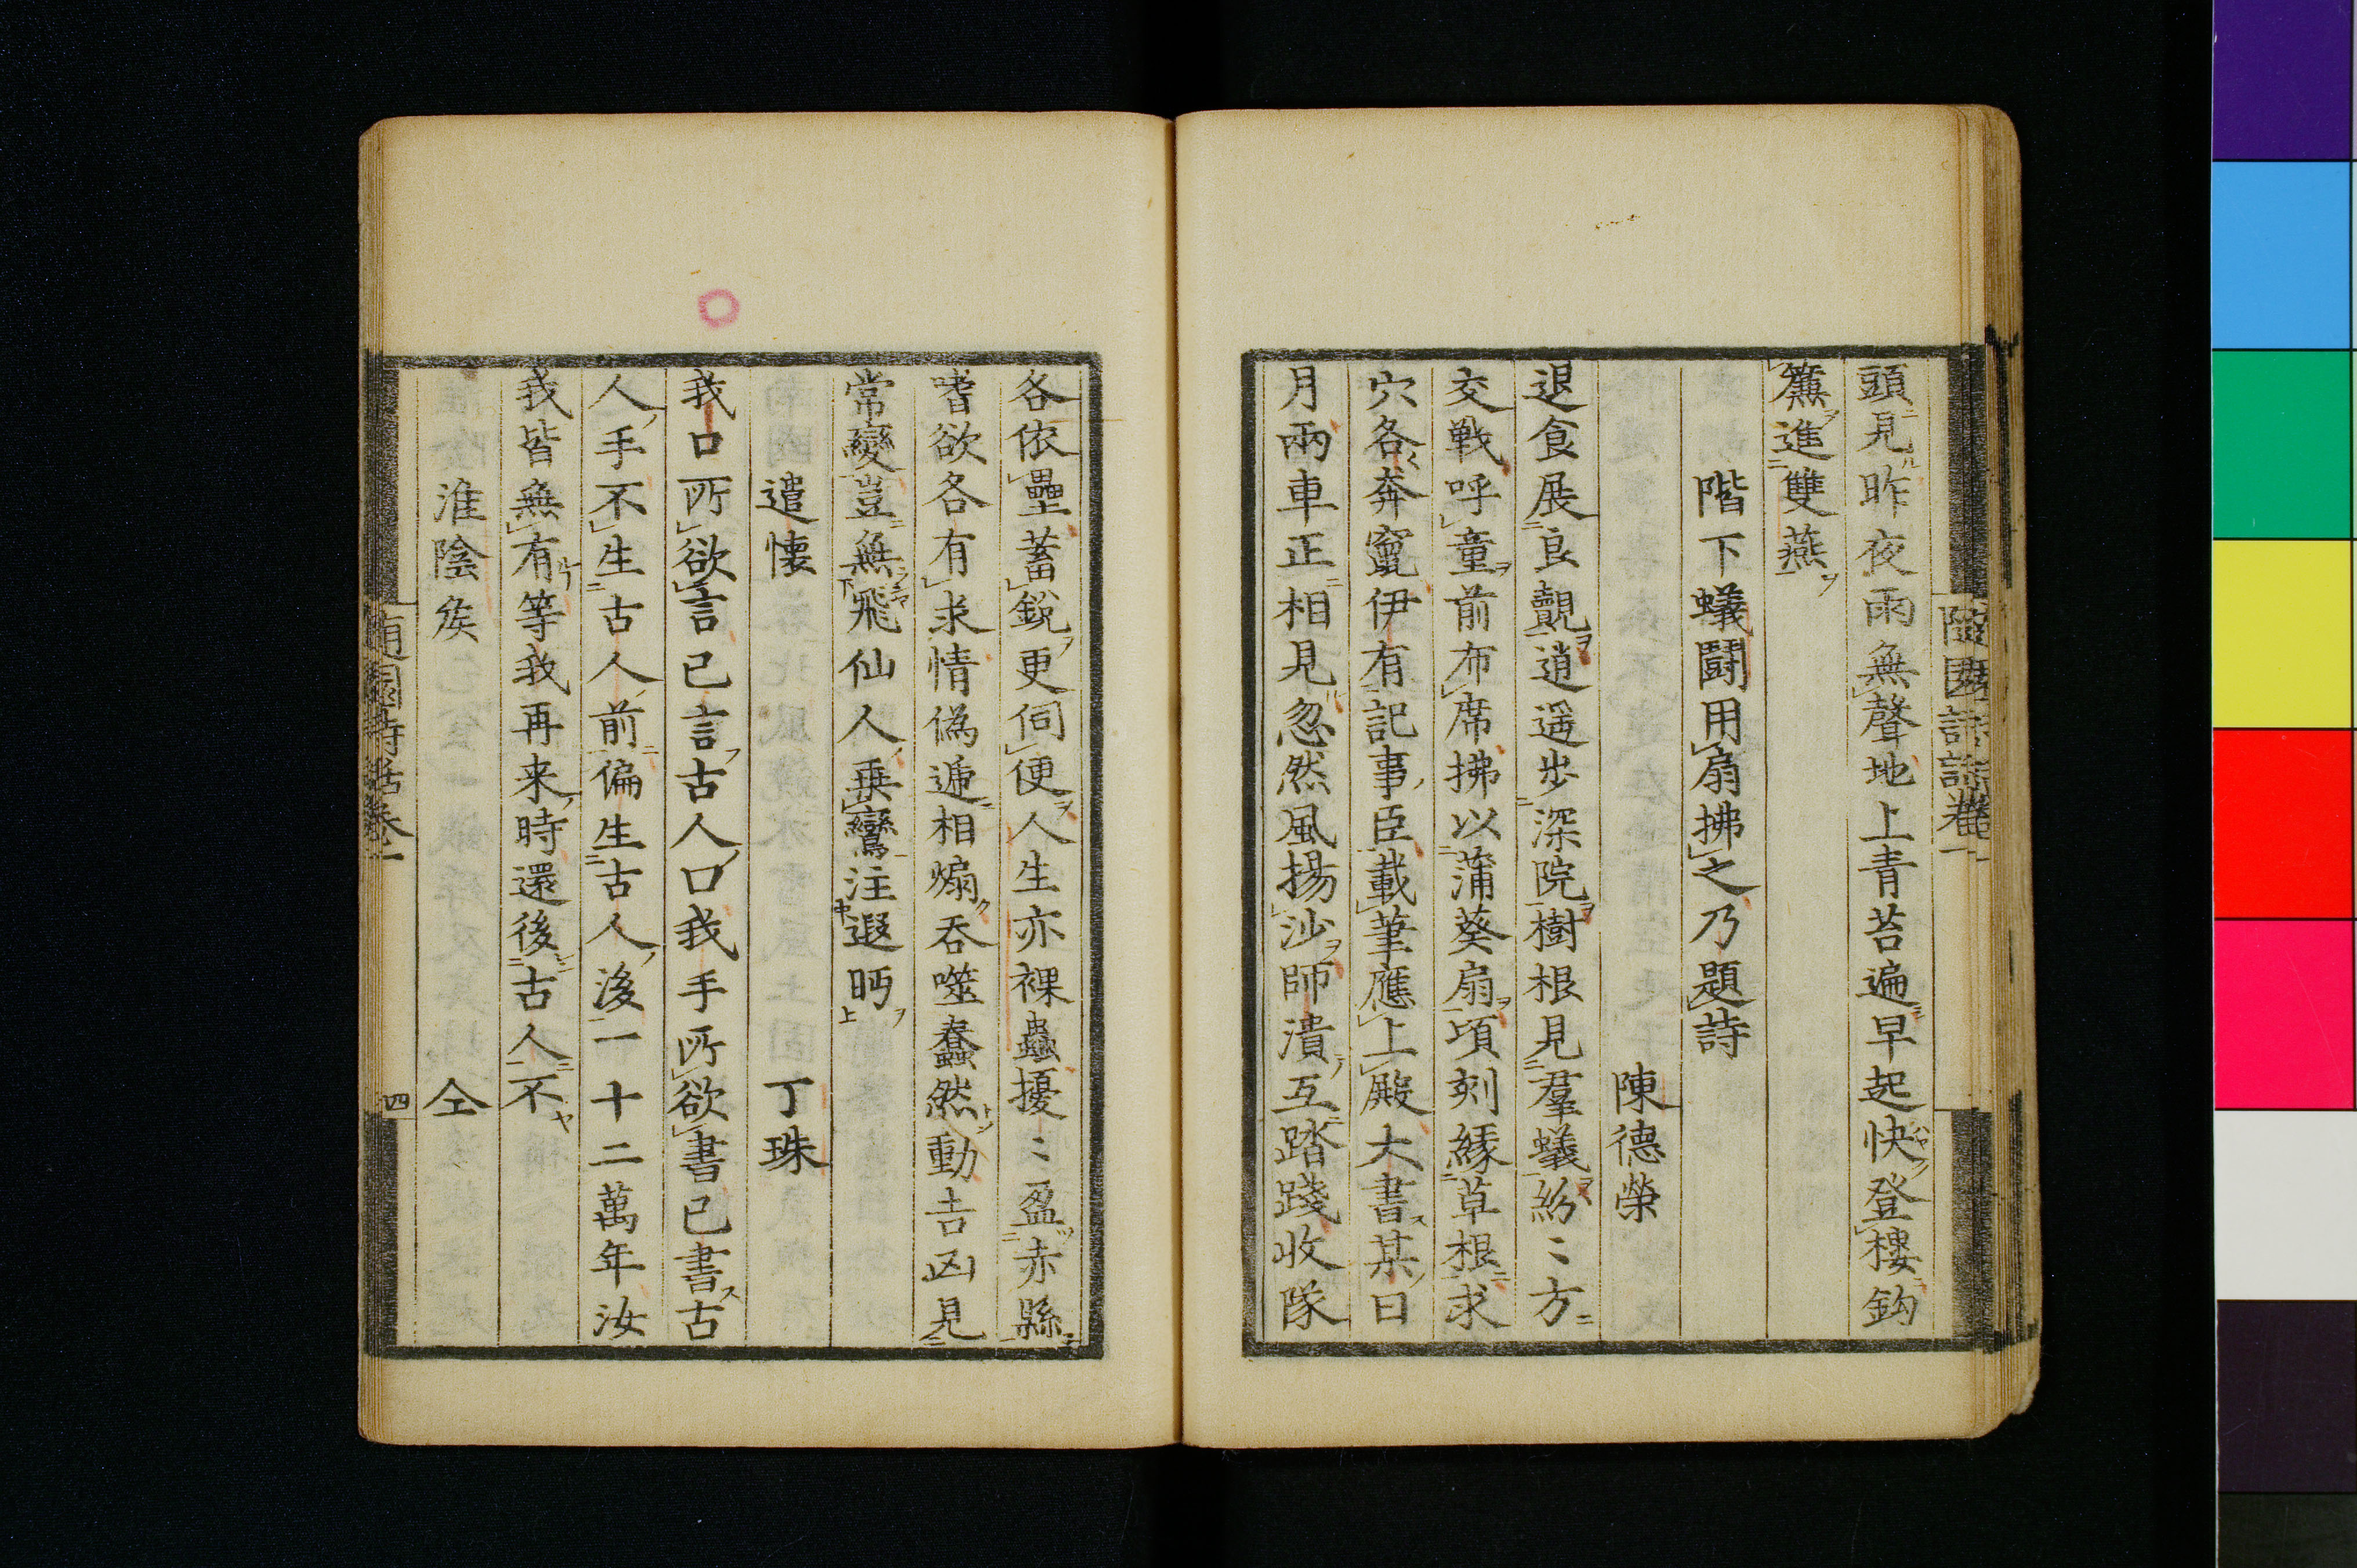 頭見昨夜雨無聲地上青苔遍早起快登樓鈎
簾進雙燕
階下蟻鬪用扇拂之乃題詩
陳德榮
退食展良覿逍遥步深院樹根見羣蟻紛〻方
交戰呼童前布席拂以蒲葵扇項刻緣草根求
穴各奔竄伊有記事臣載筆應上殿大書某日
月兩車正相見忽然風揚沙師潰互踏踐收隊
各依壘蓄銳更伺便人生亦裸蟲擾〻盈赤縣
嗜欲各有求情偽遞相煽吞噬蠢然動吉凶見
常變豈無飛仙人乗鸞注遐眄
遣懷
丁珠
我口所欲言已言古人口我手所欲書已書古
人手不生古人前偏生古人後一十二萬年汝
我皆無有等我再来時還後古人不
淮陰矦
仝
四